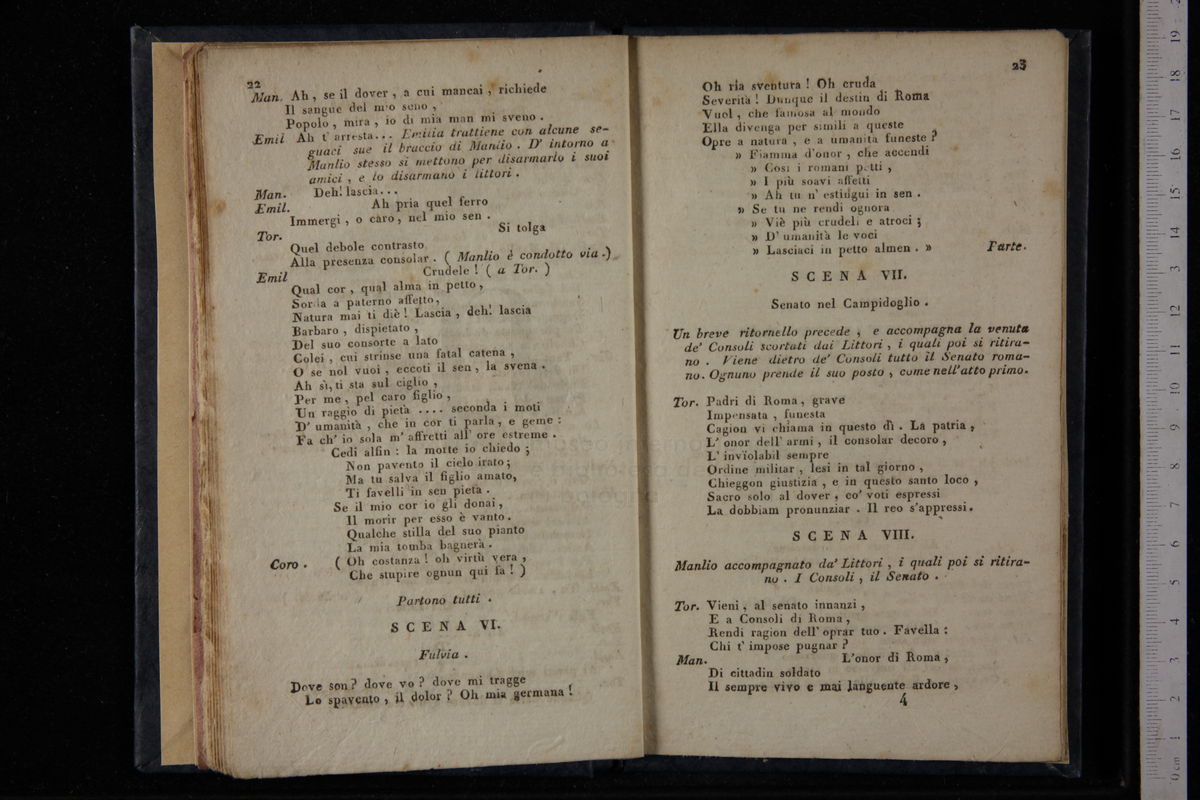 22
Man. Ah , se il dover , a cui mancai , richiede
Il sangue del mio seno ,
Popolo , mira , io di mia man mi sveno .
Emil Ah t' arresta... Emilia trattiene con alcune se-
guaci sue il braccio di Manlio . D' intorno a
Manlio stesso si mettono per disarmarlo i suoi
amici , e lo disarmano i littori .
Man. Deh! lascia...
Emil. Ah pria quel ferro
Immergi , o caro , nel mio sen .
Tor. Si tolga
Quel debole contrasto
Alla presenza consolar . ( Manlio è condotto via .)
Emil Crudele ! ( a Tor. )
Qual cor , qual alma in petto ,
Sorda a paterno affetto,
Natura mai ti diè ! Lascia , deh! lascia
Barbaro , dispietato ,
Del suo consorte a lato
Colei , cui strinse una fatal catena ,
O se nol vuoi , eccoti il sen , la svena .
Ah sì, ti sta sul ciglio ,
Per me , pel caro figlio ,
Un raggio di pietà .... seconda i moti
D' umanità , che in cor ti parla , e geme :
Fa ch' io sola m' affretti all' ore estreme .
Cedi alfin : la morte io chiedo ;
Non pavento il cielo irato ;
Ma tu salva il figlio amato,
Ti favelli in sen pietà .
Se il mio cor io gli donai ,
Il morir per esso è vanto .
Qualche stilla del suo pianto
La mia tomba bagnerà .
Coro . ( Oh costanza ! oh virtù vera ,
Che stupire ognun qui fa ! )
Partono tutti .
SCENA VI.
Fulvia .
Dove son ? dove vo ? dove mi tragge
Lo spavento , il dolor ? Oh mia germana !
23
Oh ria sventura ! Oh cruda
Severità ! Dunque il destin di Roma
Vuol , che famosa al mondo
Ella divenga per simili a queste
Opre a natura , e a umanità funeste ?
» Fiamma d'onor , che accendi
» Così i romani petti ,
» I più soavi affetti
» Ah tu n' estingui in sen .
» Se tu ne rendi ognora
» Viè più crudeli e atroci ;
» D' umanità le voci
» Lasciaci in petto almen . » Parte.
SCENA VII.
Senato nel Campidoglio .
Un breve ritornello precede , e accompagna la venuta
de' Consoli scortati dai Littori , i quali poi si ritira-
no . Viene dietro de' Consoli tutto il Senato roma-
no. Ognuno prende il suo posto , come nell'atto primo.
Tor. Padri di Roma , grave
Impensata , funesta
Cagion vi chiama in questo dì . La patria ,
L' onor dell' armi , il consolar decoro ,
L' invïolabil sempre
Ordine militar , lesi in tal giorno ,
Chieggon giustizia , e in questo santo loco ,
Sacro solo al dover , co' voti espressi
La dobbiam pronunziar . Il reo s'appressi.
SCENA VIII.
Manlio accompagnato da' Littori , i quali poi si ritira-
no . I Consoli , il Senato .
Tor. Vieni , al senato innanzi ,
E a Consoli di Roma ,
Rendi ragion dell' oprar tuo . Favella :
Chi t' impose pugnar ?
Man. L'onor di Roma ,
Di cittadin soldato
Il sempre vivo e mai languente ardore ,
4